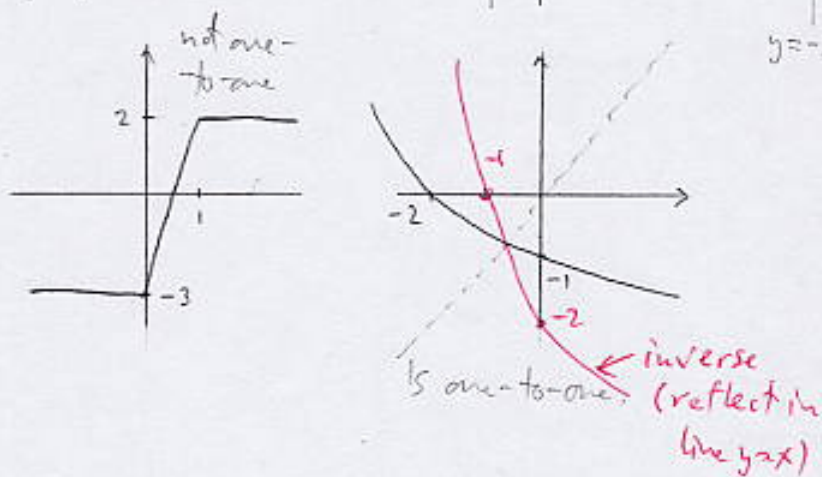 not one-
to-one
2
1
-3
y=-
-1
-2
-1
-2
is one-to-one.
inverse
(reflect in
line y=x)